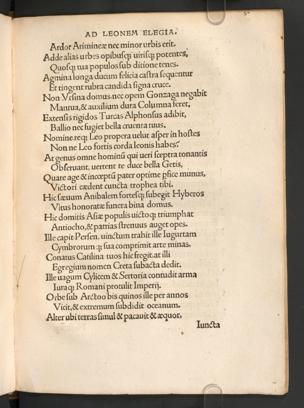 AD LEONEM ELEGIA.
Ardor Arimineæ nec minor urbis erit.
Adde alias urbes opibusq; uirisq; potentes,
Quosq; tua populos sub ditione tenes.
Agmina longa ducum felicia castra sequentur
Et tinget rubra candida signa cruce.
Non Vrsina domus nec opem Gonzaga negabit
Mantua, & auxilium dura Columna feret,
Extensis rigidos Turcas Alphonsus adibit,
Ballio nec fugiet bella cruenta tuus.
Nomine req; Leo propera uelut asper in hostes
Non ne Leo fortis corda leonis habes?
At genus omne hominū qui ueri sceptra tonantis
Obseruant, uertent te duce bella Getis,
Quare age & inceptū pater optime pfice munus,
Victori cædent cuncta trophea tibi.
Hic sæuum Anibalem fortesq; subegit Hyberos
Vitus honoratæ funera bina domus.
Hic domitis Asiæ populis uictorq; triumphat
Antiocho, & patrias strenuus auget opes.
Ille capit Persen, uinctum trahit ille Iugurtam
Cymbrorum q; sua comprimit arte minas.
Conatus Catilina tuos hic fregit, at illi
Egregium nomen Creta subacta dedit.
Ille uagum Cylicem & Sertoria contudit arma
Iuraq; Romani protulit Imperij.
Orbe sub Arctoo bis quinos ille per annos
Vicit, & extremum subdidit oceanum.
Alter ubi terras simul & pacauit & æquor,
Iuncta